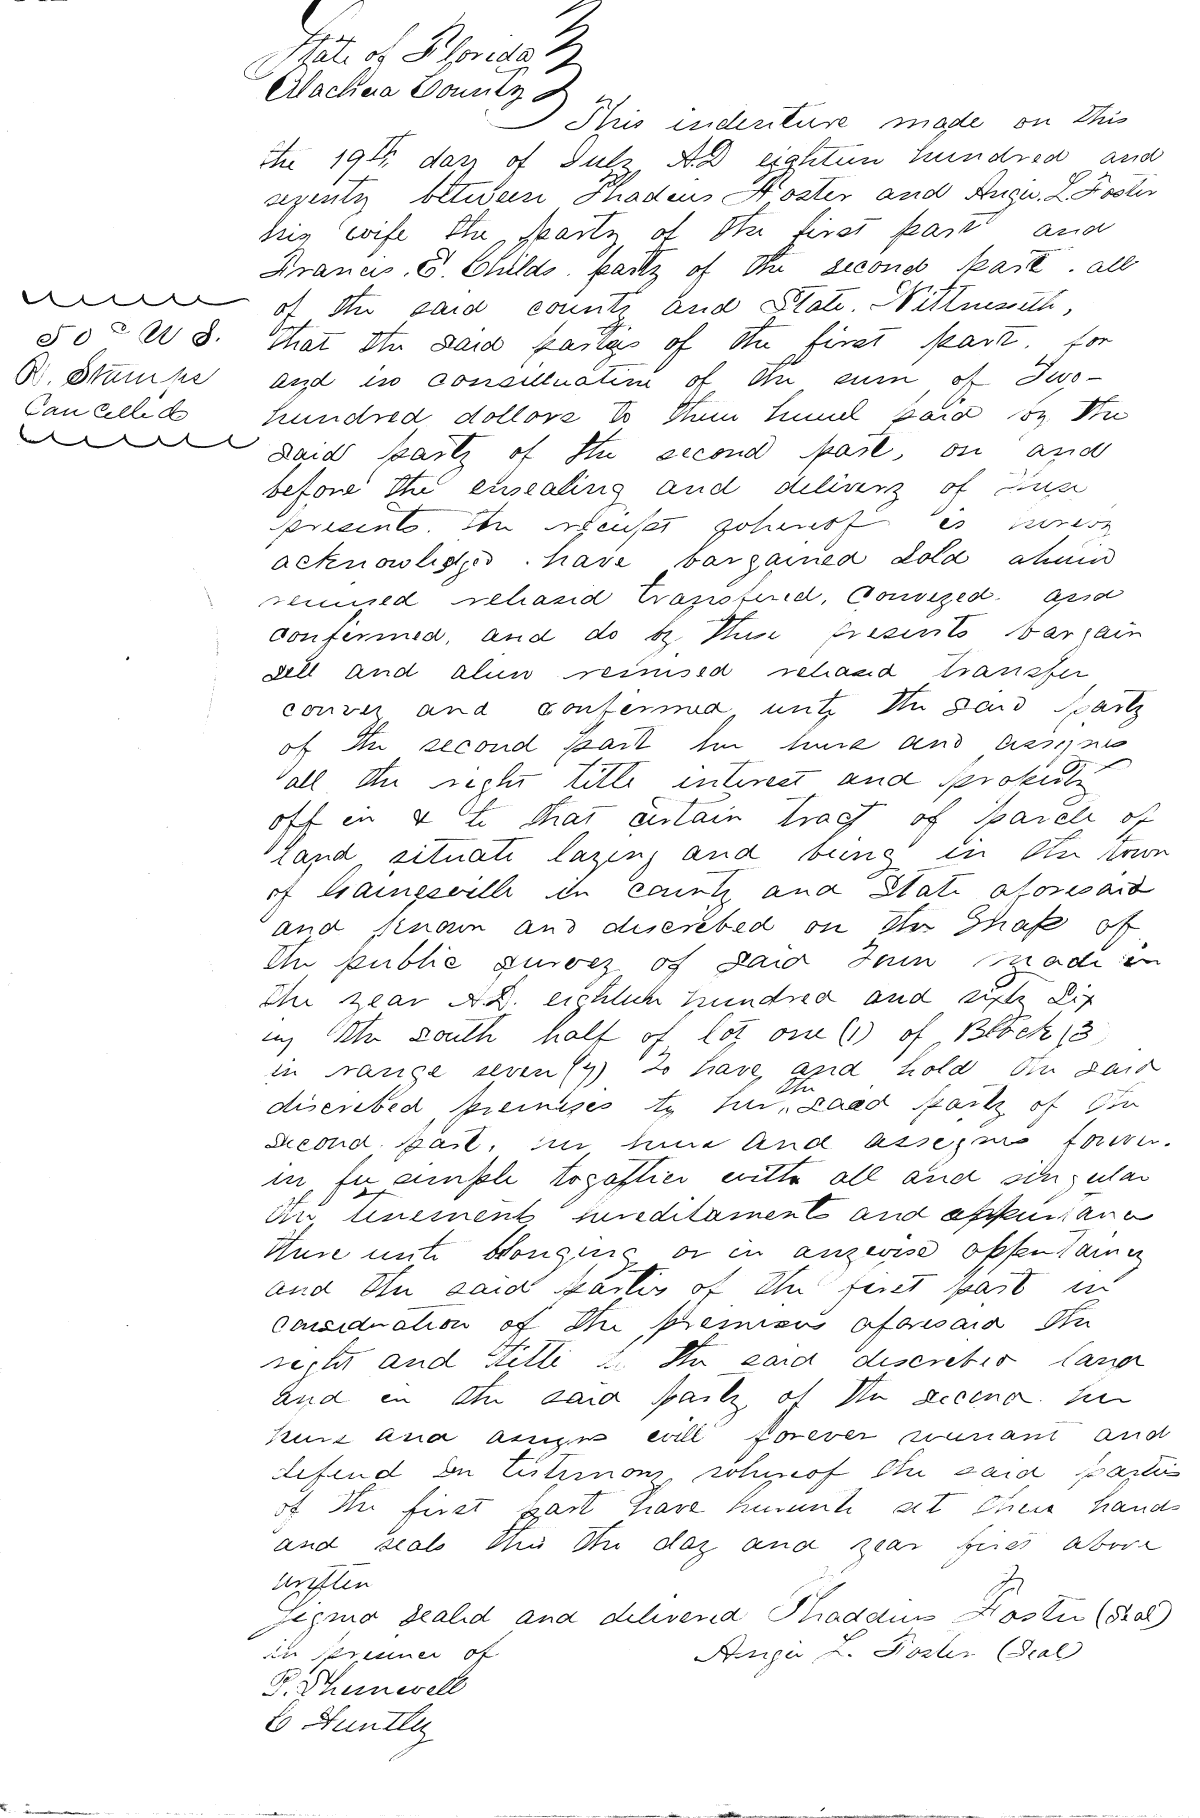 State of Florida
Alachua County
This indenture made on this
the 19th day of July A.D eighteen hundred and
seventy between Thadeus Foster and Angie. L. Foster
his wife the party of the first part and
Francis. E. Childs. party of the second part. all
of the said county and State. Wittnesseth,
50c U S.
R. Stamps
Cancelled
that the said parties of the first part. for
and in consideration of the sum of Two-
hundred dollars to them paid by the
said party of the second part, on and
before the ensealing and delivery of these
presents. the receipt whereof is hereby
acknowledged. have bargained sold alien
remised released transfered, Conveyed. and
confirmed, and do by these presents bargain
sell and alien remised released transfer
convey and confirmed unto the said party
of the second part her heirs and assignes
all the right title interest and property
off in & to that certain tract of parcle of
land situate layeing and being in the town
of Gainesville in county and State aforesaid
and known and discrebed on the Map of
the public survey of said Town made in
the year A.D. eighteen hundred and sixty Six
in the south half of lot one (1) of Block 13
in range seven (7) To have and hold the said
discrebed premises to her, the said party of the
second. part. her heirs and assegns forever.
in fee simple togather with all and singular
the tenements hereditaments and appurtance
there unto blonging or in anywise appertainey
and the said parties of the first part in
consideration of the premises aforesaid the
right and title to the said discrebed land
and in the said party of the second. her
heirs and assigns will forever warrant and
defend In testimony whereof the said parties
of the first part have hereunto set their hands
and seals this the day and year first above
written
Signed sealed and delivered Thaddius Foster (Seal)
in presence of Angie L. Foster (Seal)
C Huntley